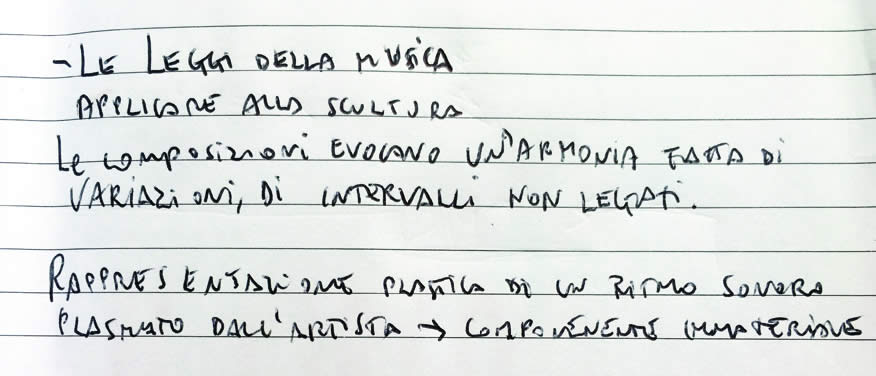 - LE LEGGI DELLA MUSICA
APPLICATE ALLA SCULTURA
Le composizioni EVOCANO UN'ARMONIA FATTA DI
VARIAZIONI, DI INTERVALLI NON LEGATI.
RAPPRESENTAZIONE PLASTICA DI UN RITMO SONORO
PLASMATO DALL'ARTISTA → COMPONENENTE IMMATERIALE